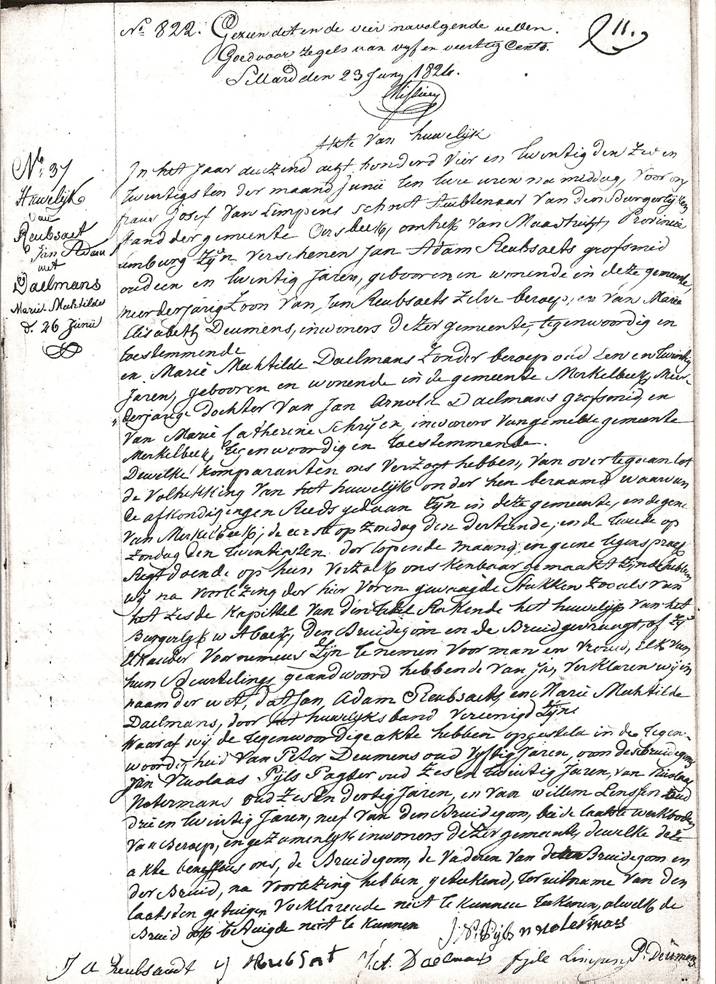 No 822. Gezien dit en de vier navolgende vellen.
Goed voor zegels van vyf en veertig Cents.
Sittard den 23 Juny 1824.
11.
Akte van huwelijk
No: 37
Huwelijk
van
Reubsaet
Jan Adam
met
Daelmans
Marie Mechtilde
d. 26 Junii
In het Jaar duizend acht honderd vier en twintig den zes en
twintigsten der maand junii ten twee uren na middag, voor ons
frans Josef Van Limpens Schout Ambtenaar van den Burgerlijken
stand der gemeente Oirsbeek, omtrek van Maastricht, Provincie
Limburg Zijn verschenen Jan Adam Reubsaets grofsmid
oud een en twintig Jaren, gebooren en wonende in deze gemeente,
meerderjarig Zoon van, Jan Reubsaets Zelve beroep, en van Marie
Elisabeth Deumens, inwoners dezer gemeente, tegenwoordig en
toestemmende
en Marie Mechtilde Daelmans Zonder beroep oud een en twintig
Jaren, gebooren en wonende in de gemeente Merkelbeek, meer-
derjarige dochter van Jan Arnold Daelmans grofsmid, en
van Marie Catherine Schrijen, inwoners van gemelde gemeente
Merkelbeek, tegenwoordig en toestemmende.
Dewilke komparanten ons verzogt hebben, van over te gaan tot
de volhekking van het huwelijk onder hen beraamd, waarvan
de afkondigingen Reeds gedaan zijn in deze gemeente, en de gene
van Merkelbeek; de eerste op zondag den dertiende, en de tweede op
zondag den twentigsten der lopende maand, en geene tegenspraek
Regt doende op hun verzoek ons kenbaar gemaakt zijnde, hebben
wij na voorlezing der hier voren gewaagde stukken zoo als van
het zesde kapittel van den titel sterkende het huwelijk van het
Burgerlijk wetboek, den Bruidegom en de Bruid gevraagt, of zij
Elkander voornemens zijn te nemen voor man en vrouw, Elk van
hun Beurtelings geandwoord hebbende van Ja, verklaren wij in
naam der wet, dat Jan Adam Reubsaets en Marie Mechtilde
Daelmans, door het huwelijks band vereenigd zijn.
Waar af wij de tegenwoordige akte hebben opgesteld in de tegen-
woordigheid van Peter Deumens oud vyftig Jaren, oom des bruidegoms
Jan Nicolaas Pijls Pagter oud zes en twintig Jaren, van Nicolaas
Notermans oud zes en dertig Jaren, en van willem Lenssen oud
drie en twintig Jaren, neef van den Bruidegom, beide laatste werkbode
van Beroep, en gezamenlijk inwoners dezer gemeente, dewilke deze
akte beneffens ons, de Bruidegom, de vaderen van den Bruidegom en
der Bruid, na voorlezing hebben getekend, ter uitname van den
laatsten getuigen verklarende niet te kunnen tekenen, alwelk de
Bruid ook betuigde niet te kunnen
J: N: Pijls n notermans
J A Reubsaedt J Reubsaet J: A. Daelmans Limpens P: Deumens